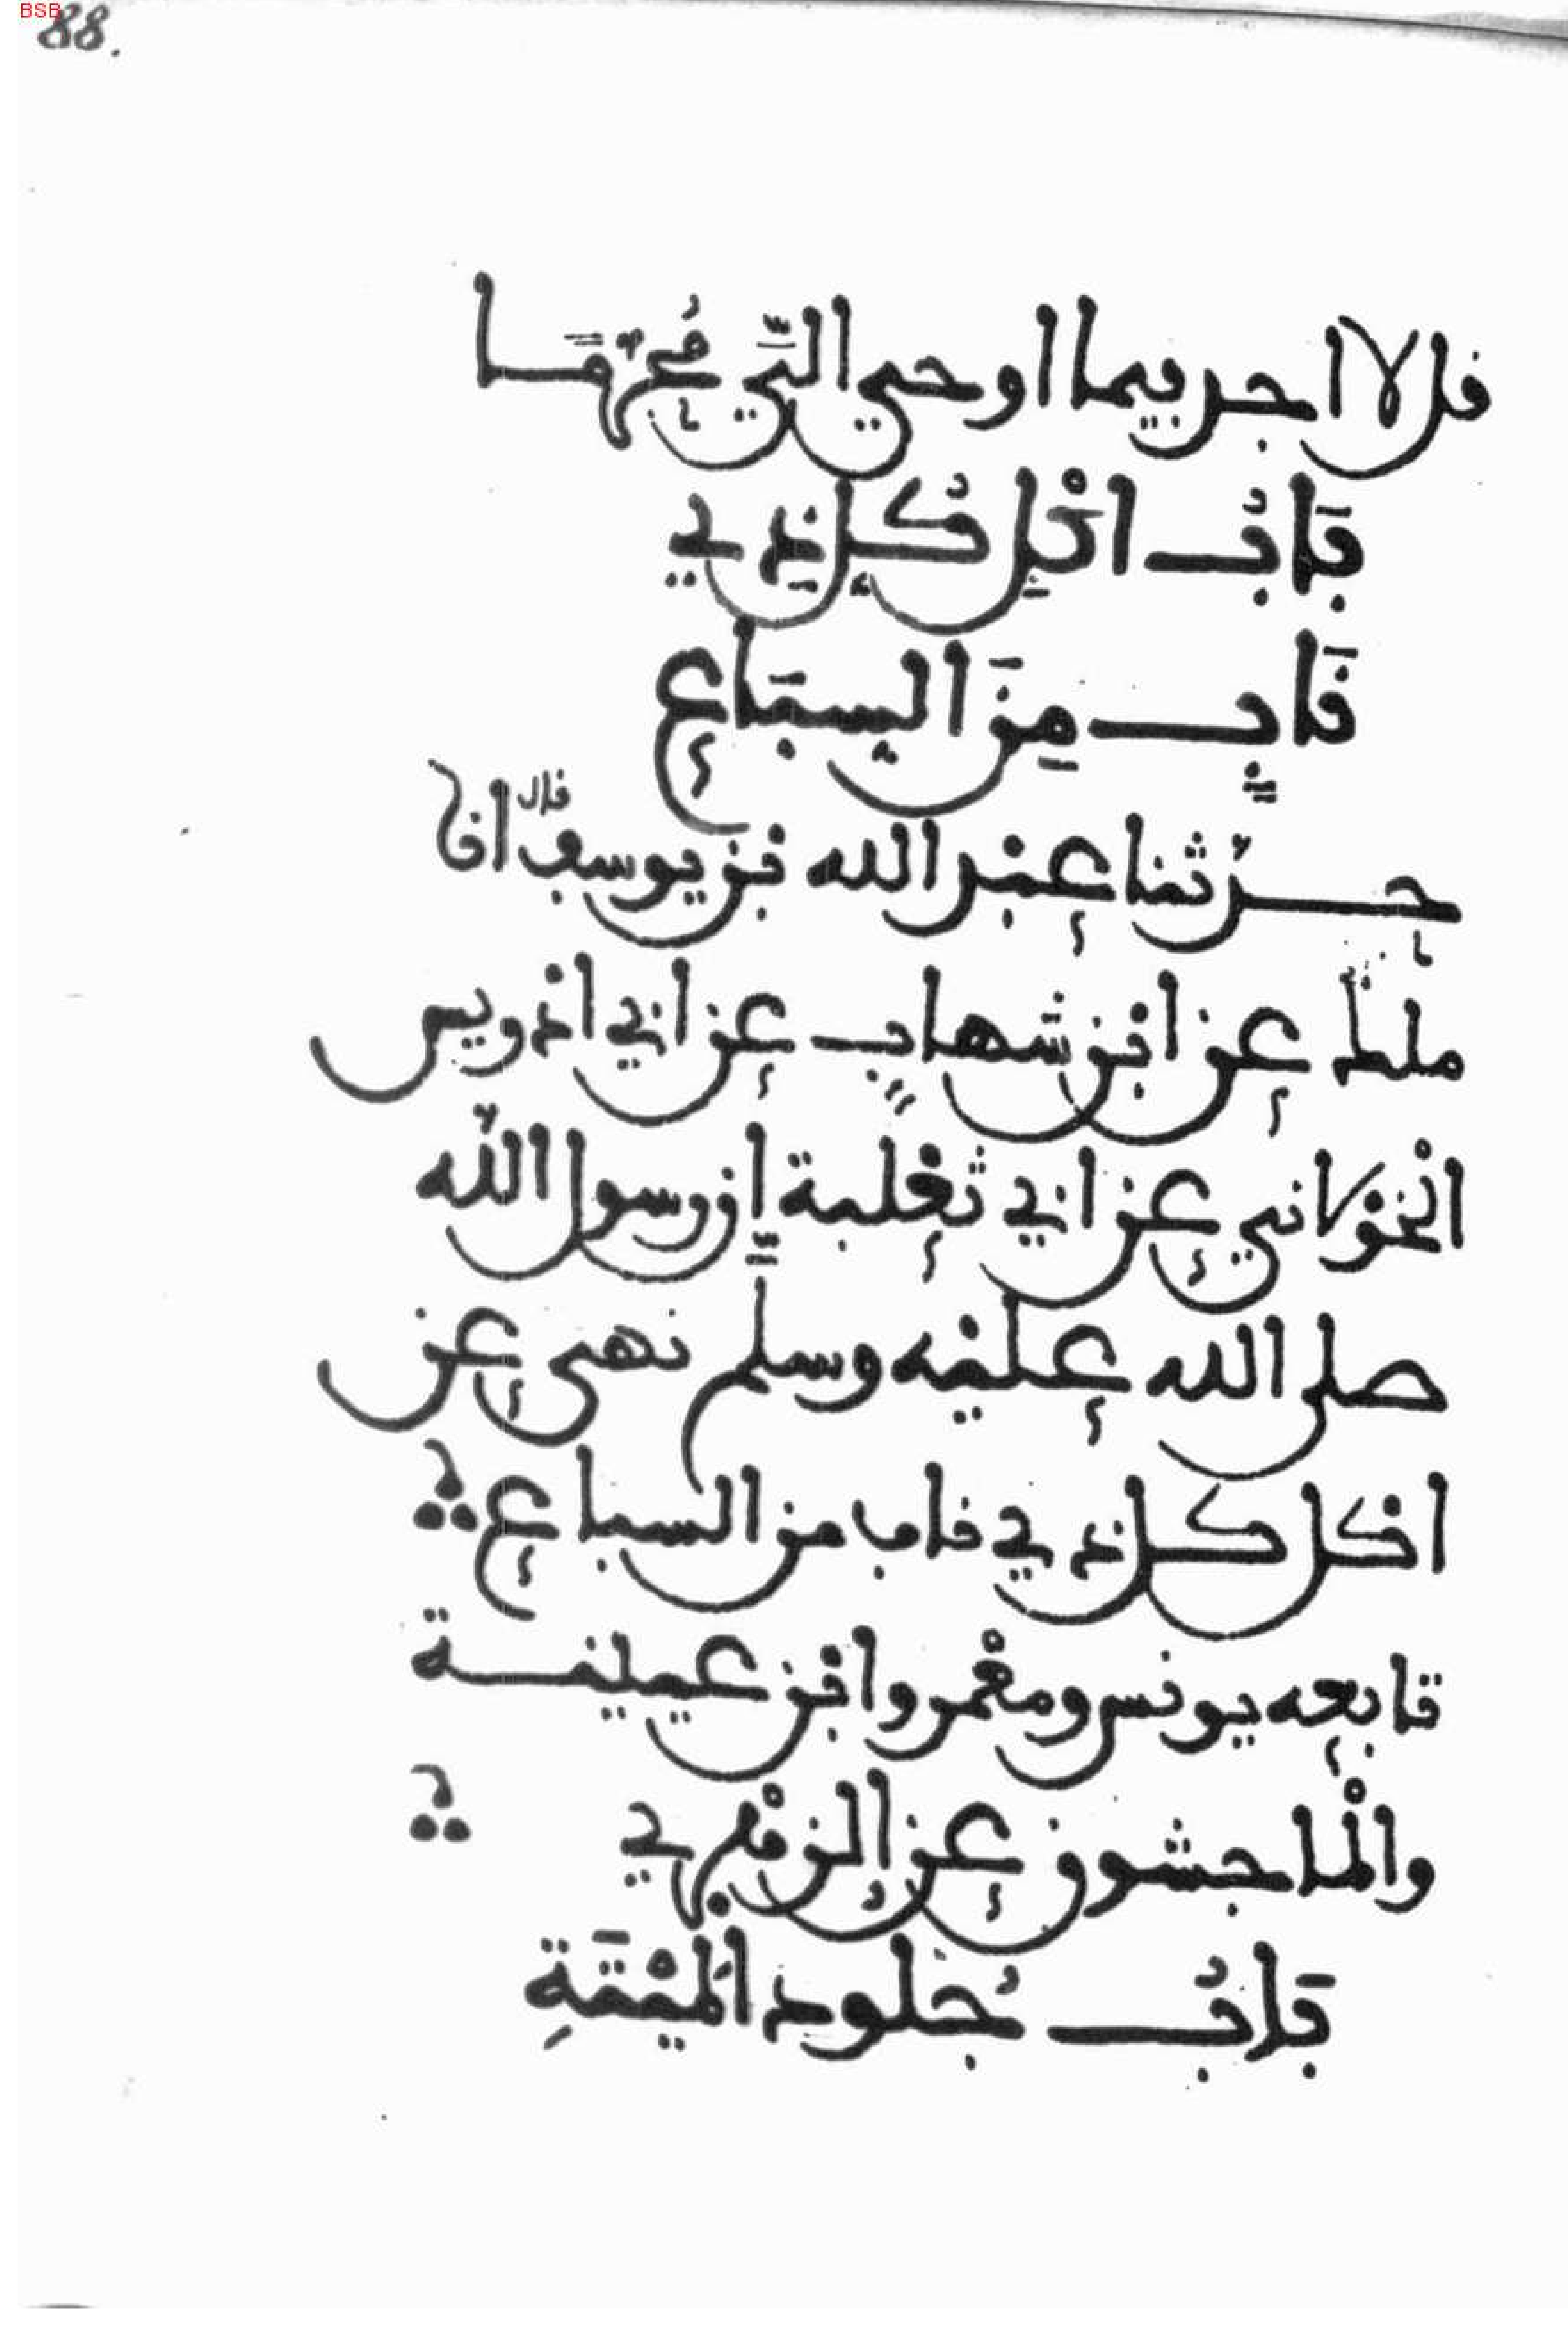 BSB
88.
قل لا اجد فيما اوحي إليَّ مُحَرَّمًا
بَابُ اكْلِ كُلِّ ذِي
نَابٍ مِنَ السِّبَاعِ
حدّثنا عبْد الله بْن يوسف قال انا
ملك عن ابْن شهابٍ عن ابي ادْريس
الْخوْلاني عن ابي ثعْلبة أنّ رسول اللّه
صلى الله عليْه وسلم نهى عن
اكْل كل ذي ناب من السباع
تابعه يونس ومعْمر وابْن عيينة
والْماجشون عن الزهْري
بَابُ جُلود الْميْتَةِ